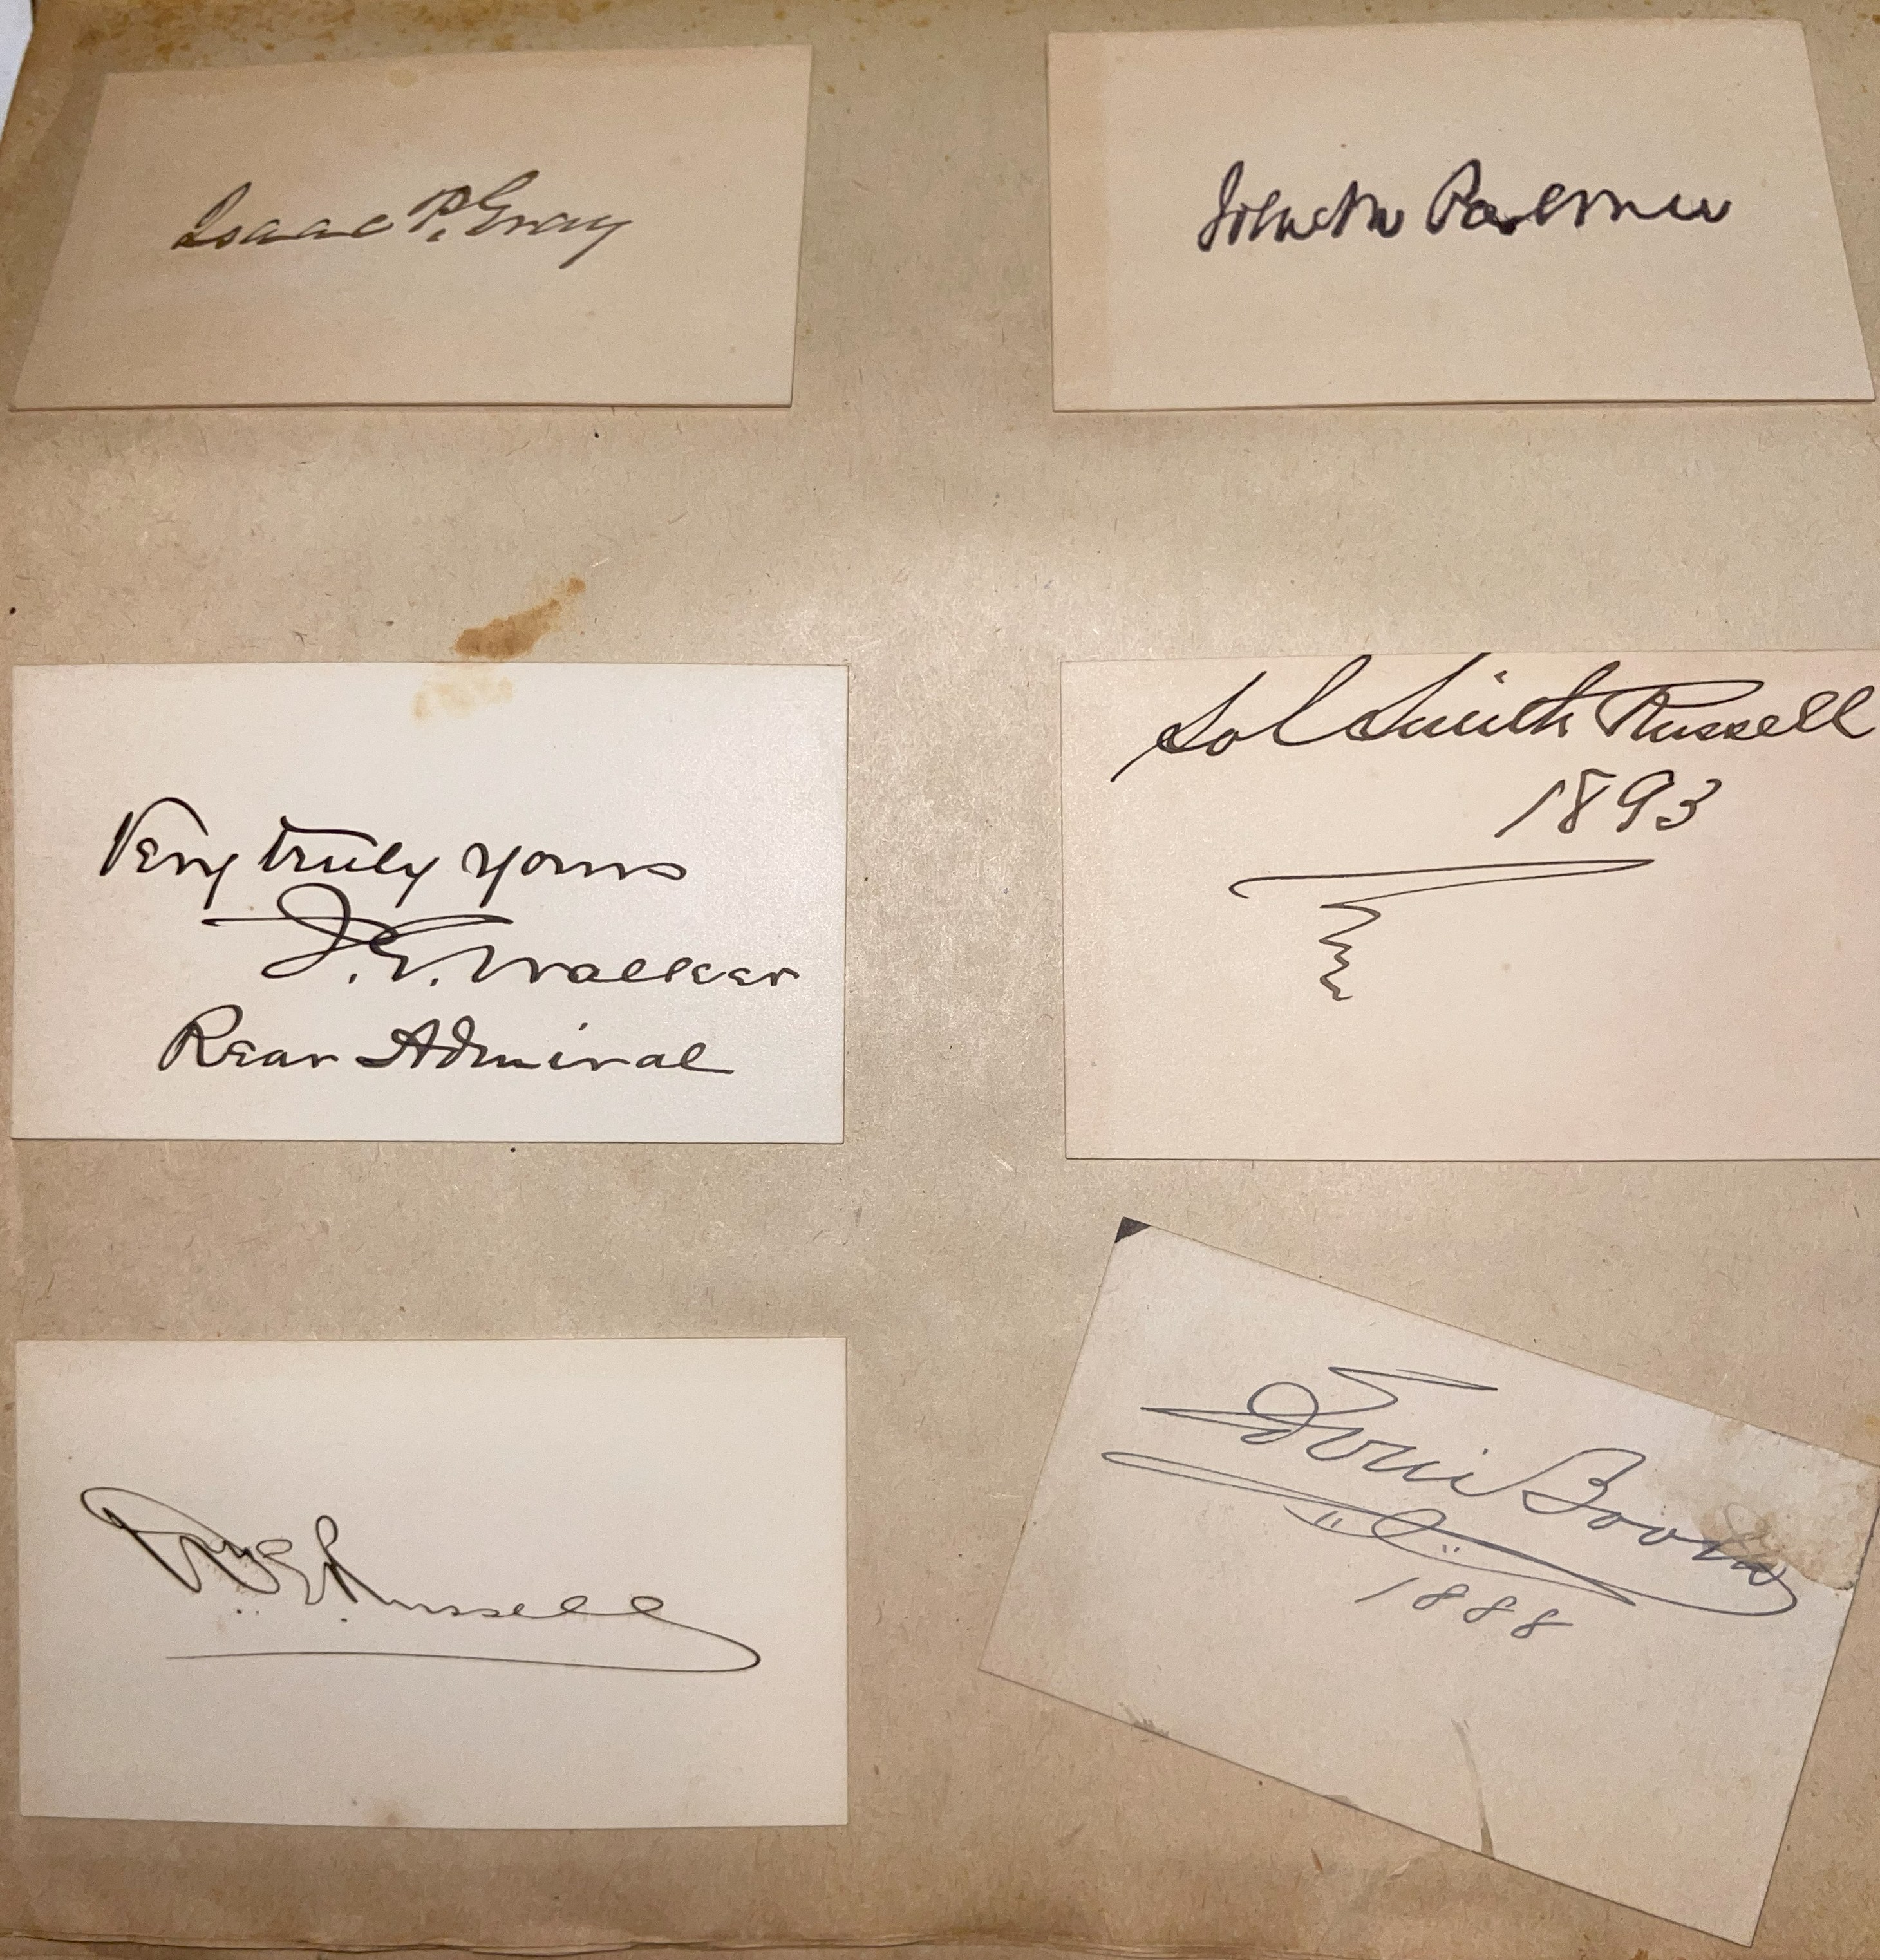 Isaac P. Gray
John M Palmer
Very truly yours
J. G. Walker
Rear Admiral
Sol Smith Russell
1893
Russell
Booth
1888